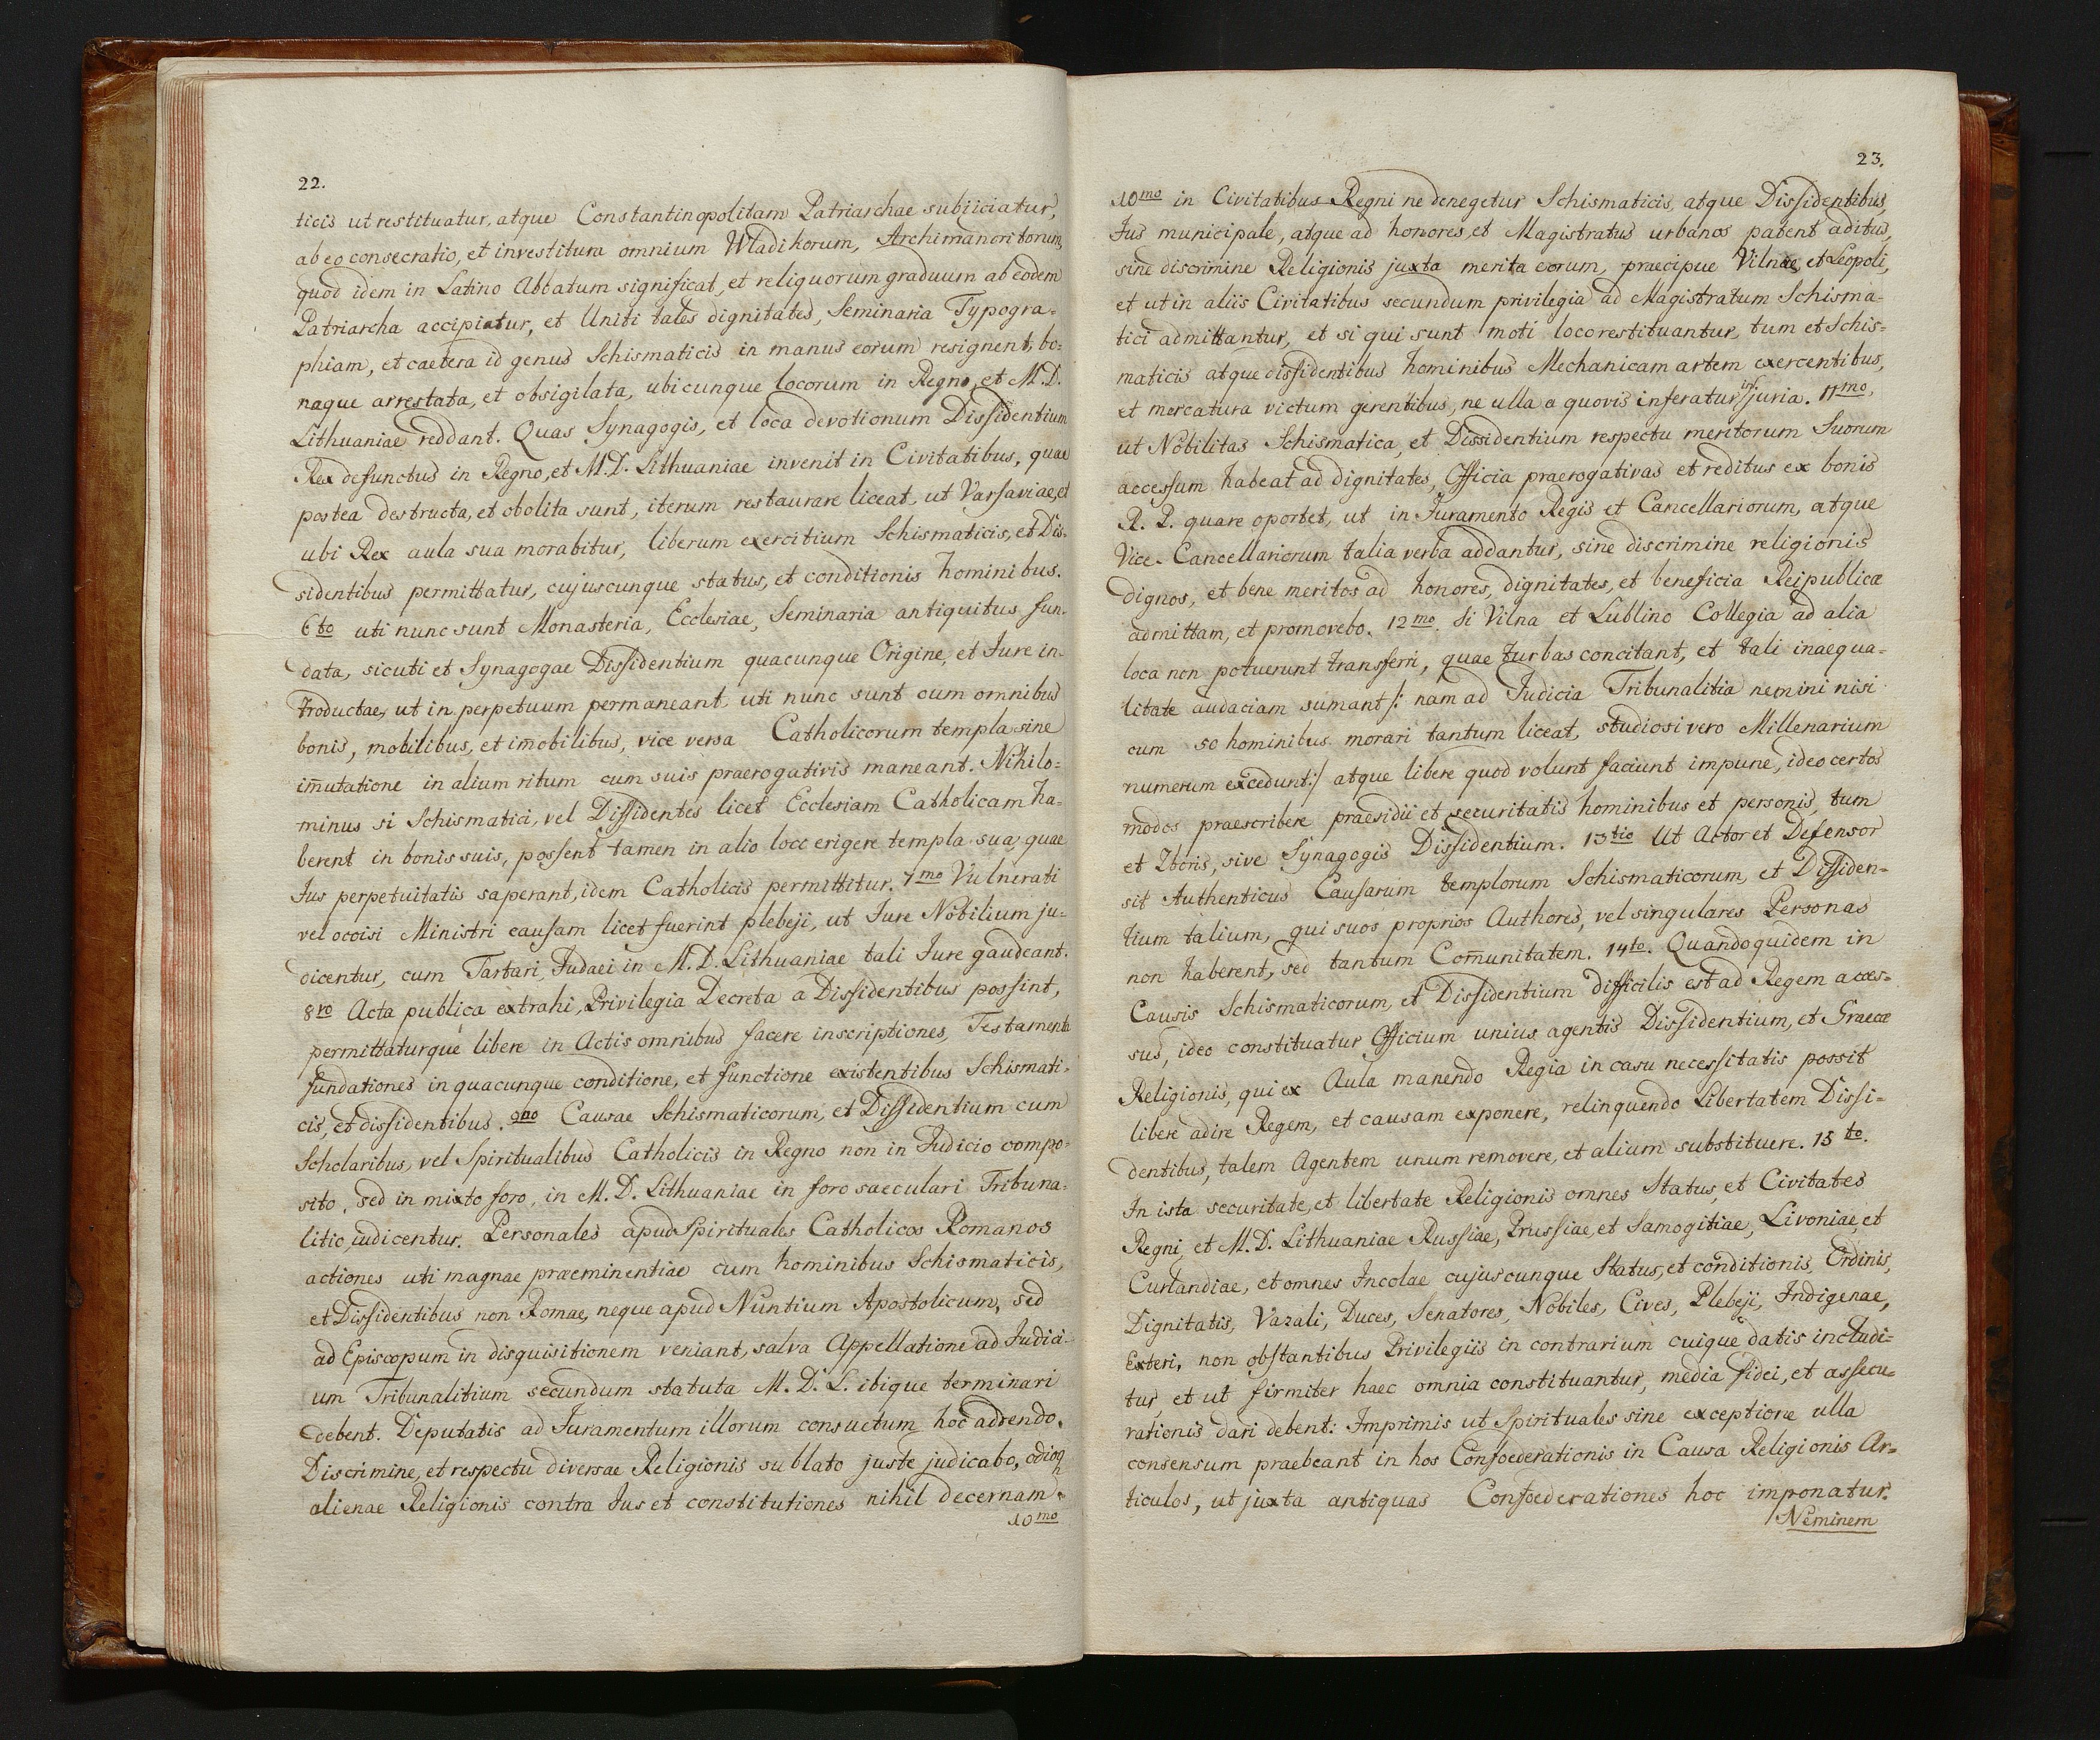 22.
ticis ut restituatur, atque Constantinopolitam Patriarchae subiiciatur,
ab eo consecratio, et investitura omnium Wladikorum, Archimandritorum,
quod idem in Latino Abbatum significat, et reliquorum graduum ab eodem
Patriarcha accipiatur, et Uniti tales dignitates, Seminaria Typogra-
phiam, et caetera id genus Schismaticis in manus eorum resignent, bo-
naque arrestata, et obsigilata, ubicunque locorum in Regno, et M. D.
Lithuaniae reddant. Quas Synagogis, et loca devotionum Dissidentium
Rex defunctus in Regno, et M. D. Lithuaniae invenit in Civitatibus, quae
postea destructa, et obolita sunt, iterum restaurare liceat, ut Varsaviae, et
ubi Rex aula sua morabitur, liberum exercitium Schismaticis, et Dis-
sidentibus permittatur, cujuscunque status, et conditionis hominibus.
6to uti nunc sunt Monasteria, Ecclesiae, Seminaria antiquitus fun-
data, sicuti et Synagogae Dissidentium quacunque Origine, et Jure in-
troductae, ut in perpetuum permaneant, uti nunc sunt cum omnibus
bonis, mobilibus, et im̄obilibus, vice versa Catholicorum templa sine
im̄utatione in alium ritum cum suis praerogativis maneant. Nihilo-
minus si Schismatici, vel Dissidentes licet Ecclesiam Catholicam ha-
berent in bonis suis, possent tamen in alio loco erigere templa sua, quae
Jus perpetuitatis saperant, idem Catholicis permittitur. 7mo Vulnerati
vel occisi Ministri causam licet fuerint plebeji, ut Jure Nobilium ju-
dicentur, cum Tartari, Judaei in M. D. Lithuaniae tali Jure gaudeant.
8vo Acta publica extrahi, Privilegia Decreta a Dissidentibus possint,
permittaturque libere in Actis omnibus facere inscriptiones, Testamenta
fundationes in quacunque conditione, et functione existentibus Schismati-
cis, et dissidentibus. 9no Causae Schismaticorum, et Dissidentium cum
Scholaribus, vel Spiritualibus Catholicis in Regno non in Judicio compo-
sito, sed in mixto foro, in M. D. Lithuaniae in foro saeculari Tribuna-
litio judicentur. Personales apud Spirituales Catholicos Romanos
actiones uti magnae praeminentiae cum hominibus Schismaticis,
et Dissidentibus non Romae, neque apud Nuntium Apostolicum, sed
ad Episcopum in disquisitionem veniant, salva Appellatione ad Judici-
um Tribunalitium secundum statuta M. D. L. ibique terminari
debent. Deputatis ad Juramentum illorum consuetum hoc addendo.
Discrimine, et respectu diversae Religionis sublato juste judicabo,
alienae Religionis contra Jus et constitutiones nihil decernam.
10mo
23.
10mo in Civitatibus Regni ne denegetur Schismaticis, atque Dissidentibus,
Jus municipale, atque ad honores, et Magistratus urbanos patent aditus,
sine discrimine Religionis juxta merita eorum, praecipue Vilnae, et Leopoli,
et ut in aliis Civitatibus secundum privilegia ad Magistratum Schisma-
tici admittantur, et si qui sunt moti loco restituantur, tum et Schis-
maticis atque dissidentibus hominibus Mechanicam artem exercentibus,
et mercatura victum gerentibus, ne ulla a quovis inferatur injuria. 11mo.
ut Nobilitas Schismatica, et Dissidentium respectu meritorum Suorum
accessum habeat ad dignitates, Officia praerogativas et reditus ex bonis
R. P. quare oportet, ut in Juramento Regis et Cancellariorum, atque
Vice-Cancellariorum talia verba addantur, sine discrimine religionis
dignos, et bene meritos ad honores, dignitates, et beneficia Reipublicæ
admittam, et promovebo. 12mo. Si Vilna et Lublino Collegia ad alia
loca non potuerunt transferri, quae turbas concitant, et tali inaequa-
litate audaciam sumant /: nam ad Judicia Tribunalitia nemini nisi
cum 50 hominibus morari tantum liceat, studiosi vero Millenarium
numerum excedunt:/ atque libere quod volunt faciunt impune, ideo certos
modos praescribere praesidii et securitatis hominibus et personis, tum
et Zboris, sive Synagogis Dissidentium. 13tio Ut Actor et Defensor
sit Authenticus Causarum templorum Schismaticorum, et Dissiden-
tium talium, qui suos proprios Authores, vel singulares Personas
non haberent, sed tantum Com̄unitatem. 14to. Quandoquidem in
Causis Schismaticorum, et Dissidentium difficilis est ad Regem acces-
sus, ideo constituatur Officium unius agentis Dissidentium, et Graecæ
Religionis, qui ex Aula manendo Regia in casu necessitatis possit
libere adire Regem, et causam exponere, relinquendo Libertatem Dissi-
dentibus, talem Agentem unum removere, et alium substituere. 15to.
In ista securitate, et libertate Religionis omnes Status, et Civitates
Regni, et M. D. Lithuaniae Russiae, Prussiae, et Samogitiae, Livoniae, et
Curlandiae, et omnes Incolae cujuscunque Status, et conditionis, Ordinis,
Dignitatis, Vazali, Duces, Senatores, Nobiles, Cives, Plebeji, Indigenae,
Exteri, non obstantibus Privilegiis in contrarium cuique datis includi-
tur et ut firmiter haec omnia constituantur, media fidei, et assecu-
rationis dari debent: Imprimis ut Spirituales sine exceptione ulla
consensum praebeant in hos Confoederationis in Causa Religionis Ar-
ticulos, ut juxta antiquas Confoederationes hoc imponatur.
Neminem